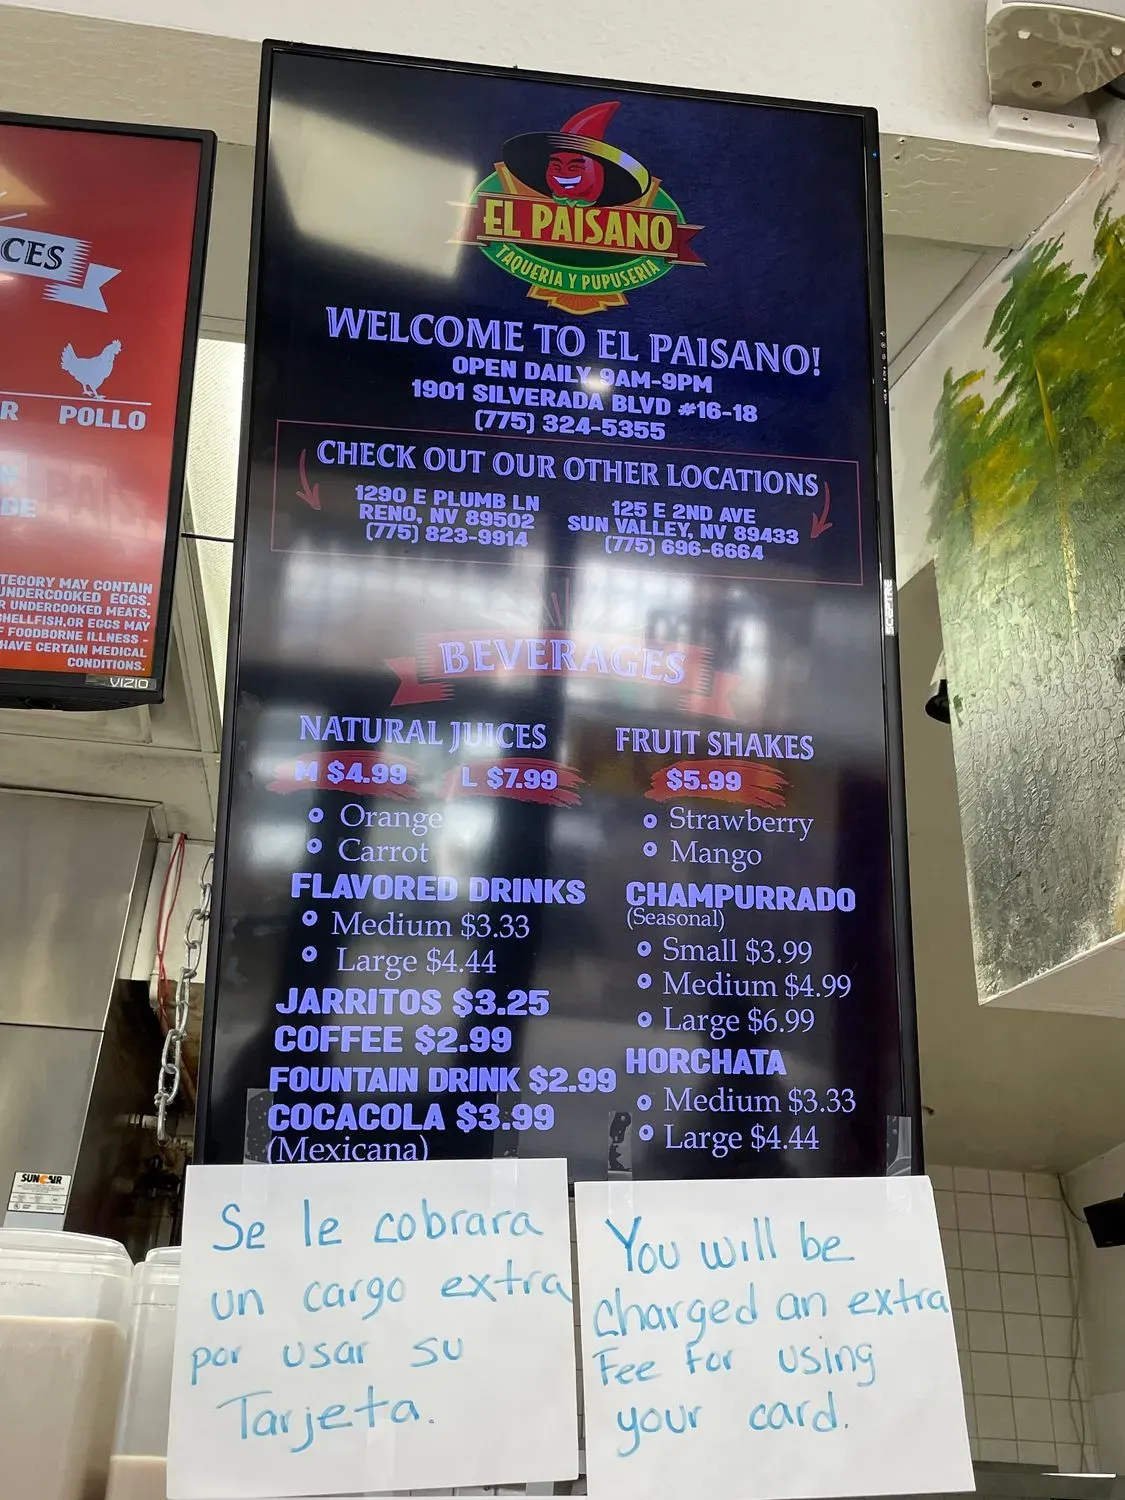 CES
R POLLO
BE
TEGORY MAY CONTAIN
UNDERCOOKED EGGS.
R UNDERCOOKED MEATS,
SHELLFISH,OR EGGS MAY
F FOODBORNE ILLNESS -
HAVE CERTAIN MEDICAL
CONDITIONS.
VIZIO
EL PAISANO
TAQUERIA Y PUPUSERIA
WELCOME TO EL PAISANO!
OPEN DAILY 9AM-9PM
1901 SILVERADA BLVD #16-18
(775) 324-5355
CHECK OUT OUR OTHER LOCATIONS
1290 E PLUMB LN
RENO, NV 89502
(775) 823-9914
125 E 2ND AVE
SUN VALLEY, NV 89433
(775) 696-6664
SCEPTRE
BEVERAGES
NATURAL JUICES
M $4.99 L $7.99
Orange
Carrot
FLAVORED DRINKS
Medium $3.33
Large $4.44
JARRITOS $3.25
COFFEE $2.99
FOUNTAIN DRINK $2.99
COCACOLA $3.99
(Mexicana)
FRUIT SHAKES
$5.99
Strawberry
Mango
CHAMPURRADO
(Seasonal)
Small $3.99
Medium $4.99
Large $6.99
HORCHATA
Medium $3.33
Large $4.44
SUNCAIR
Se le cobrara
un cargo extra
por usar su
Tarjeta.
You will be
charged an extra
Fee For using
your card.